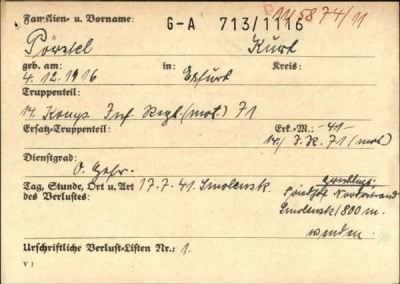 Familien- u. Vorname: G-A 713/1116 5874/11
Pörstel Kurt
geb. am: in: Kreis:
4.12.1916 Erfurt
Truppenteil:
14. Komp. Inf. Regt. (mot.) 71
Ersatz-Truppenteil: Erk.-M.: -41-
14./ J.R. 71 (mot)
Dienstgrad:
O. Gefr.
Tag, Stunde, Ort u. Art 17.7.41. Smolensk. gefallen.
des Verlustes: Friedhof Nordostrand
Smolensk/800 m.
wenden.
Urschriftliche Verlust-Listen Nr.: 1.
V I